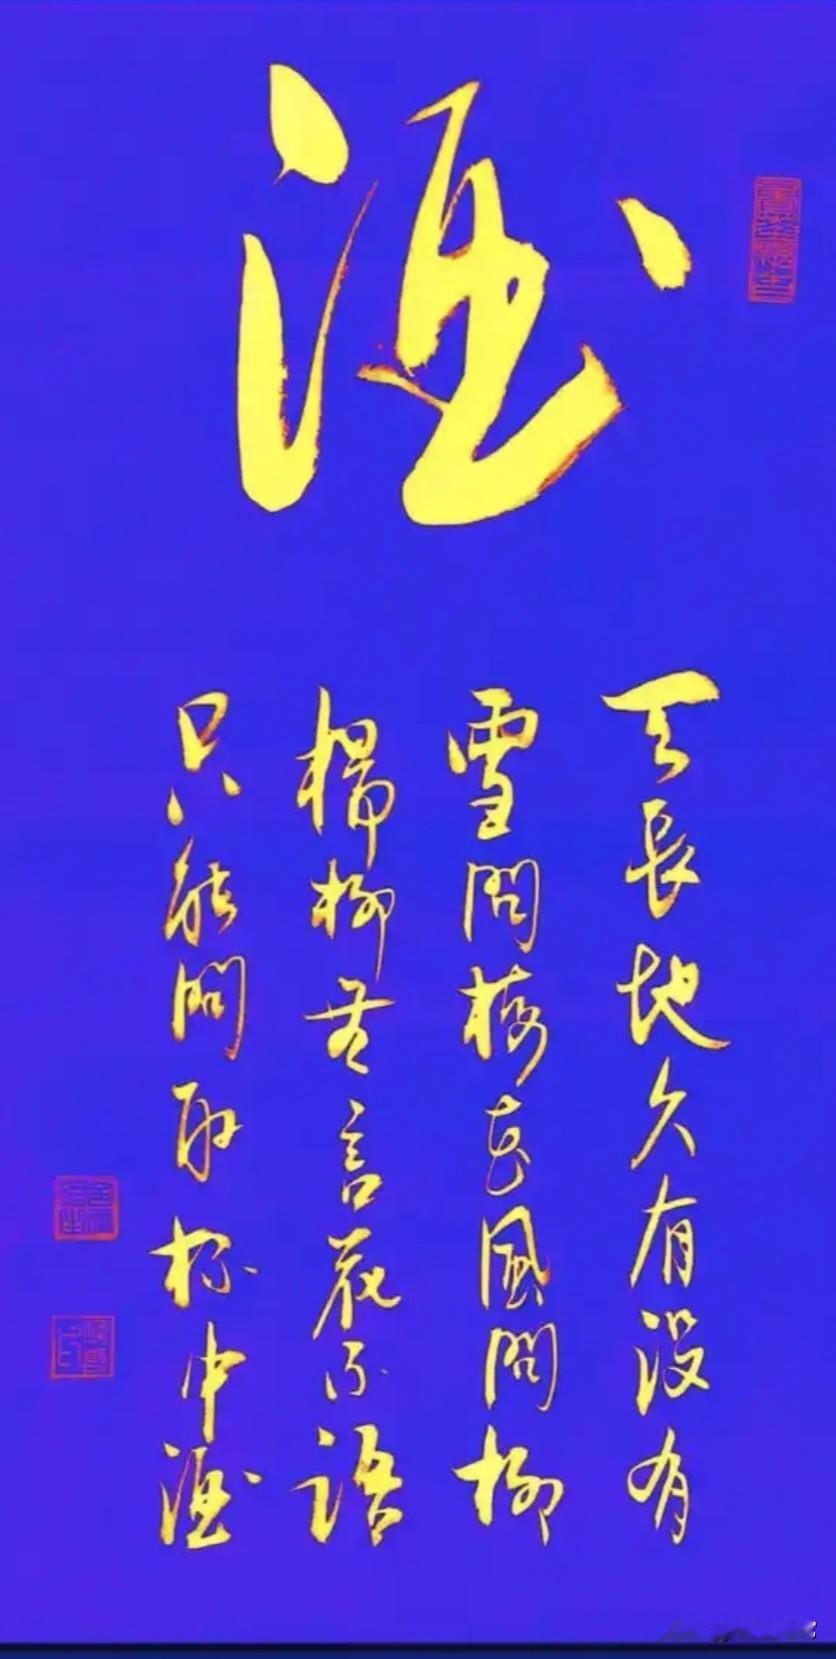 酒
天長地久有没有
雪問梅花風問柳
楊柳無言花不語
只能問取杯中酒